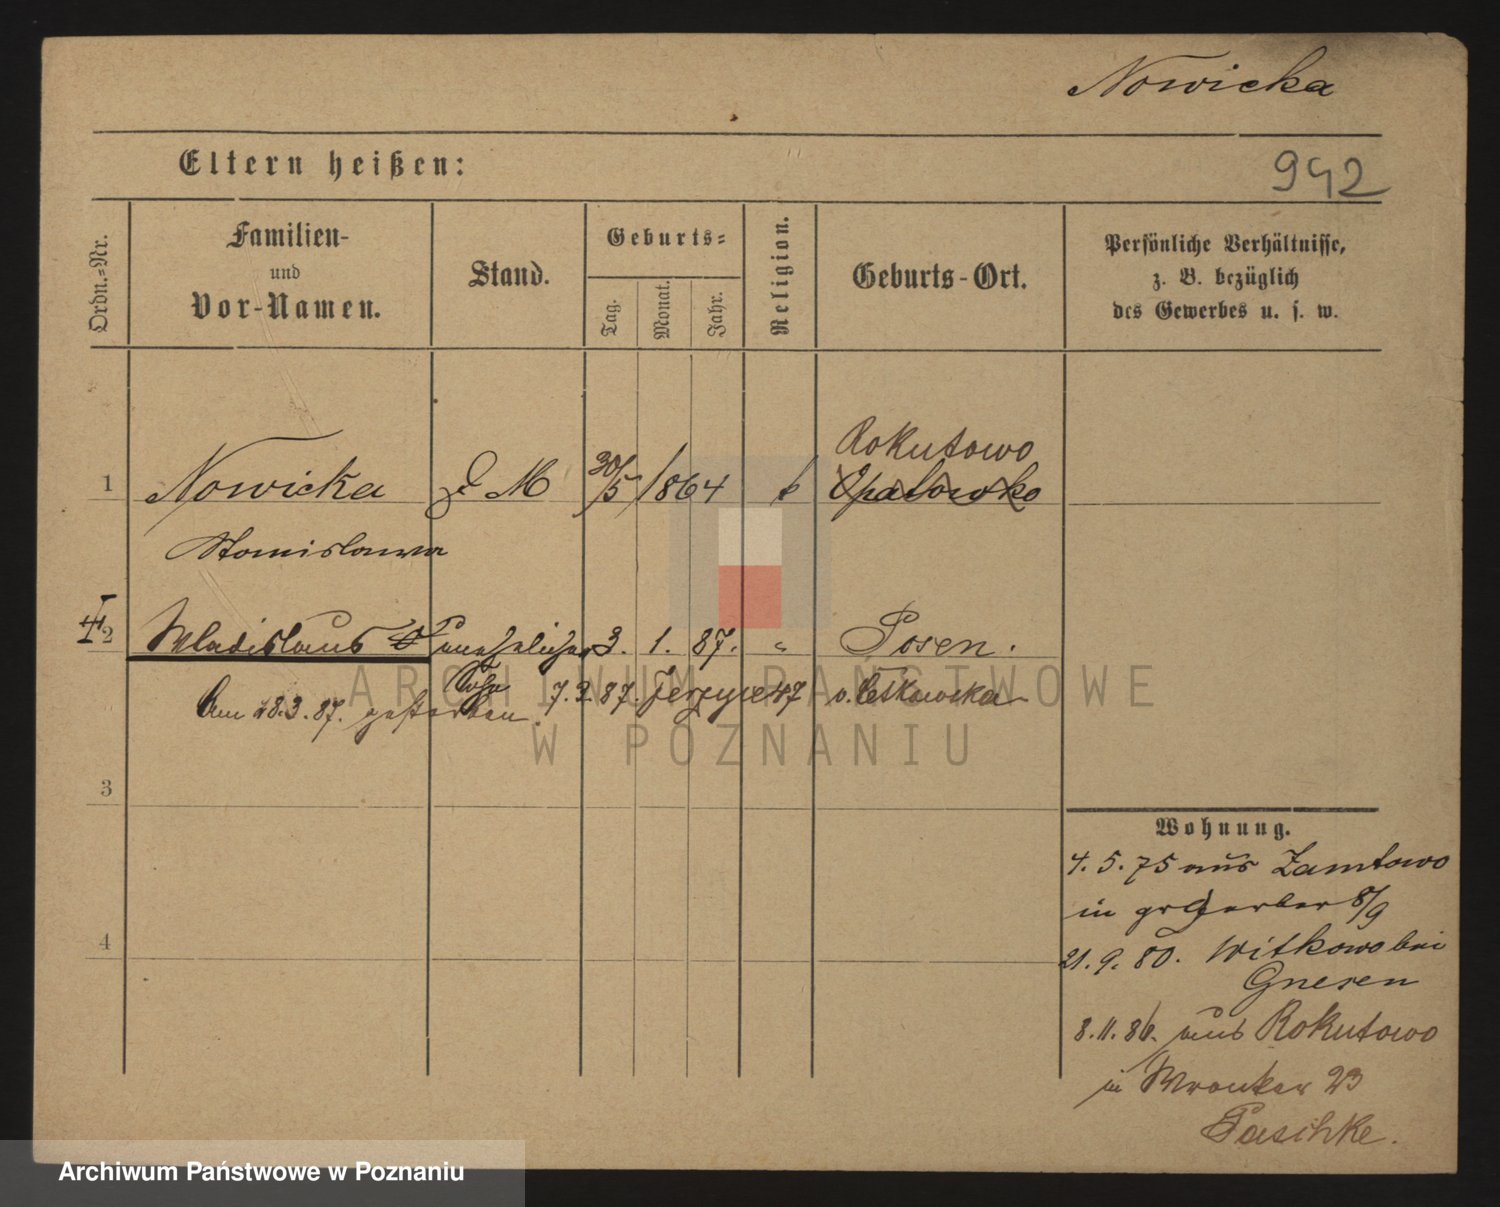 Nowicka
Eltern heißen:
942
Ordn.=Nr.
Familien-
und
Vor-Namen.
Stand.
Geburts=
Tag.
Monat.
Jahr.
Religion.
Geburts-Ort.
Persönliche Verhältnisse,
z. B. bezüglich
des Gewerbes u. s. w.
Rokutowo
1 Nowicka d M 30/5 1864 k Opatowko
Stanislawa
2 Wladislaus unehelicher 3. 1. 87. " Posen.
Sohn
7.2.87. Jerzyce 47 v. Leskowska
Am 28.3.87. gestorben.
3
4
Wohnung.
4.5.75 aus Zamtowo
in gr Gerber 8/9
21.9.80. Witkowo bei
Gnesen
8.11.86. aus Rokutowo
in Wronker 23
Paschke.
ARCHIWUM PAŃSTWOWE
W POZNANIU
Archiwum Państwowe w Poznaniu